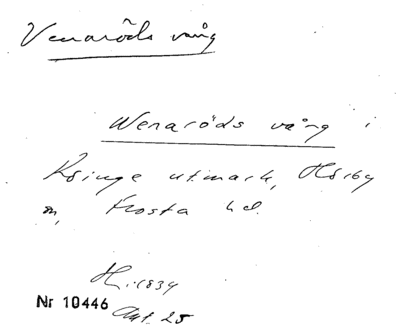 Venaröds vång
Wenaröds vång i
Ksinge utmark, Hörby
sn, Frosta hd.
H. 1834
Nr 10446
Akt. 25